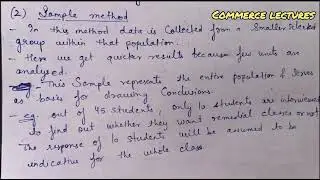 COMMERCE LECTURES
(2) Sample method
- In this method data is collected from a smaller selected
group within that population.
- Here we get quicker results because few units are
analysed.
- This Sample represents the entire population & serves
as basis for drawing Conclusions.
- eg. out of 45 students, only 10 students are interviewed
to find out whether they want remedial classes or not.
The response of 10 students will be assumed to be
indicative for the whole class